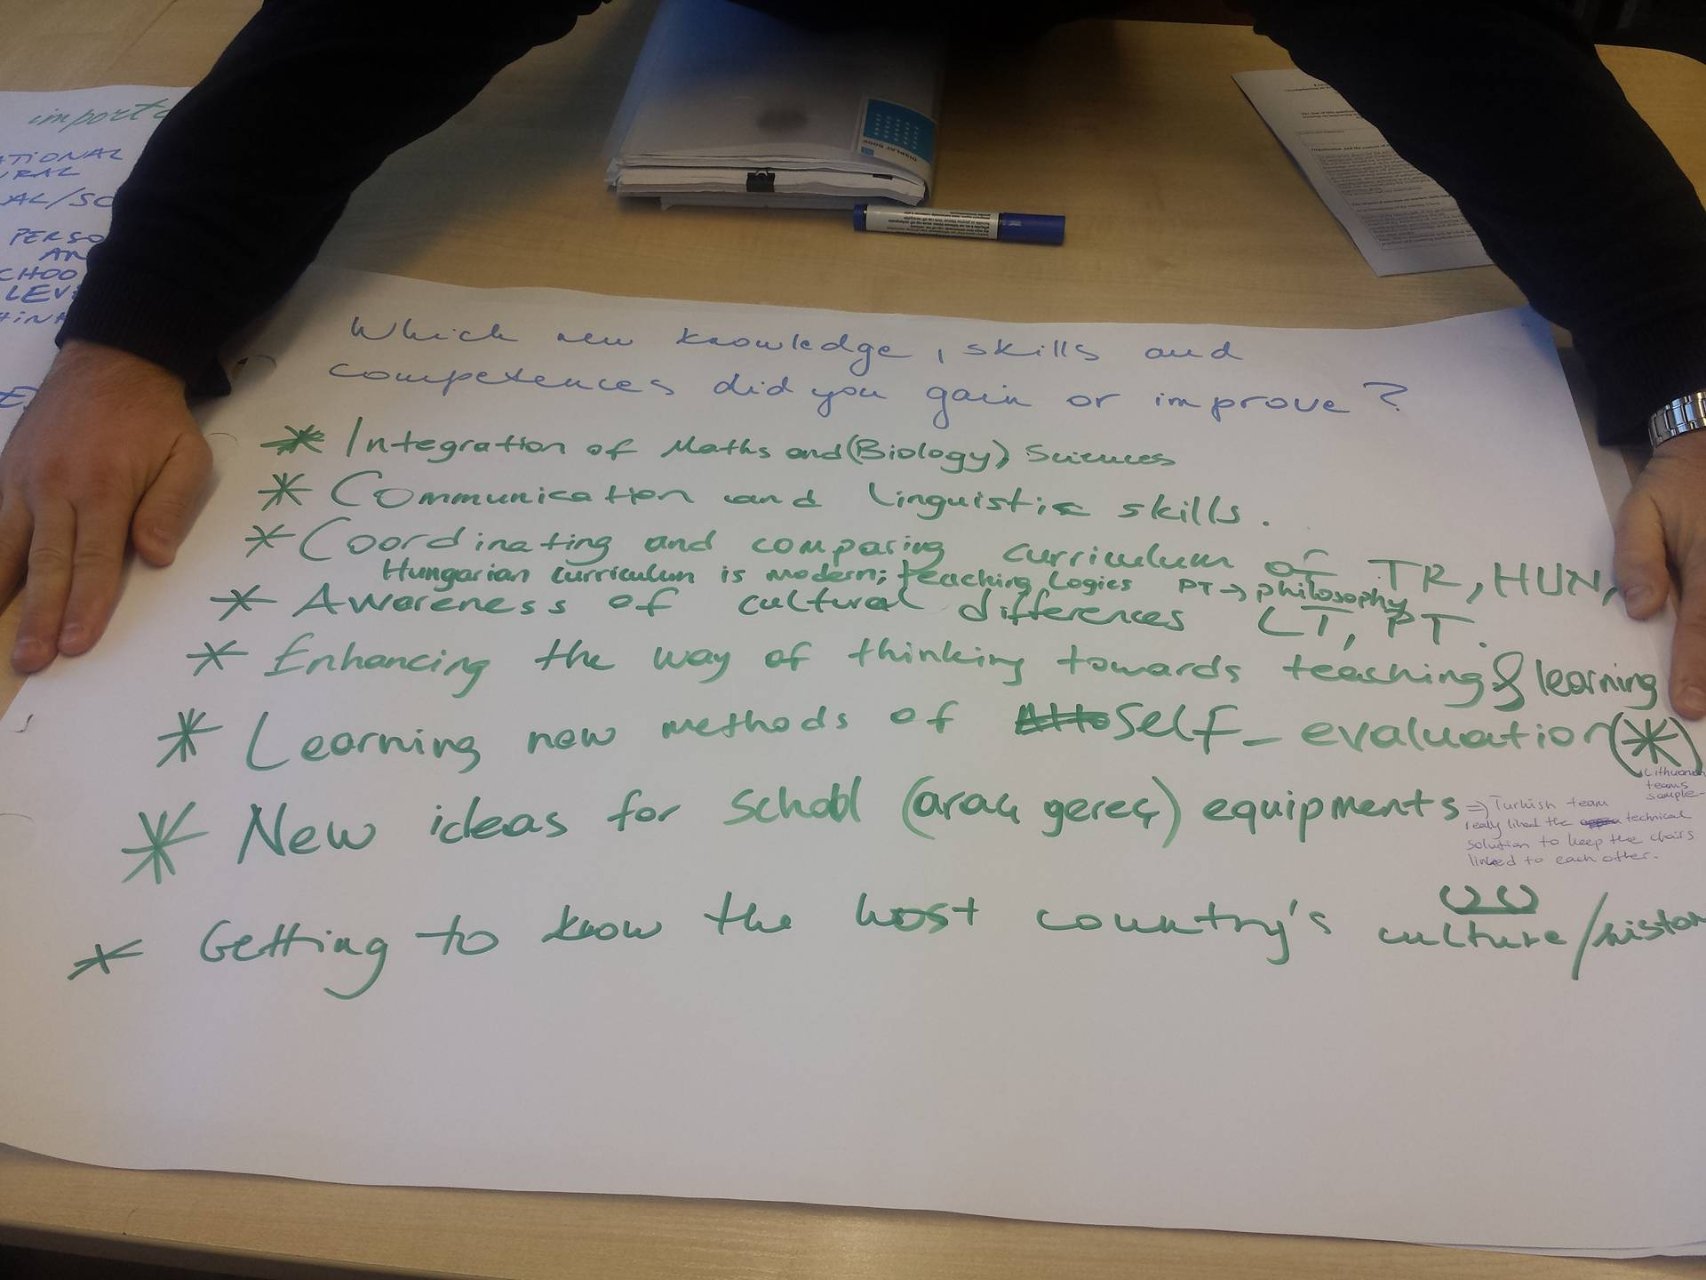 importa
ATIONAL
URAL
AL/SC
PERSO
AN
CHOO
LEV
HINK
DISPLAY BOOK
Which new knowledge, skills and
competences did you gain or improve?
* Integration of Maths and (Biology) Sciences
* Communication and Linguistic skills.
* Coordinating and comparing curriculum of TR, HUN,
LT, PT.
Hungarian curriculum is modern; teaching Logics PT → philosophy
* Awareness of cultural differences
* Enhancing the way of thinking towards teaching & learning
* Learning new methods of self-evaluation (*)
Lithuanian
teams
sample
* New ideas for school (araç gereç) equipments
⇒ Turkish team
really liked the technical
solution to keep the chairs
linked to each other.
* Getting to know the host country's culture/histor